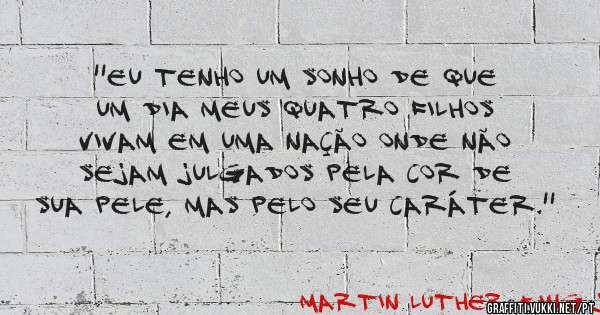 "EU TENHO UM SONHO DE QUE
UM DIA MEUS QUATRO FILHOS
VIVAM EM UMA NAÇÃO ONDE NÃO
SEJAM JULGADOS PELA COR DE
SUA PELE, MAS PELO SEU CARÁTER."
MARTIN LUTHER
GRAFFITI.VUKKI.NET/PT